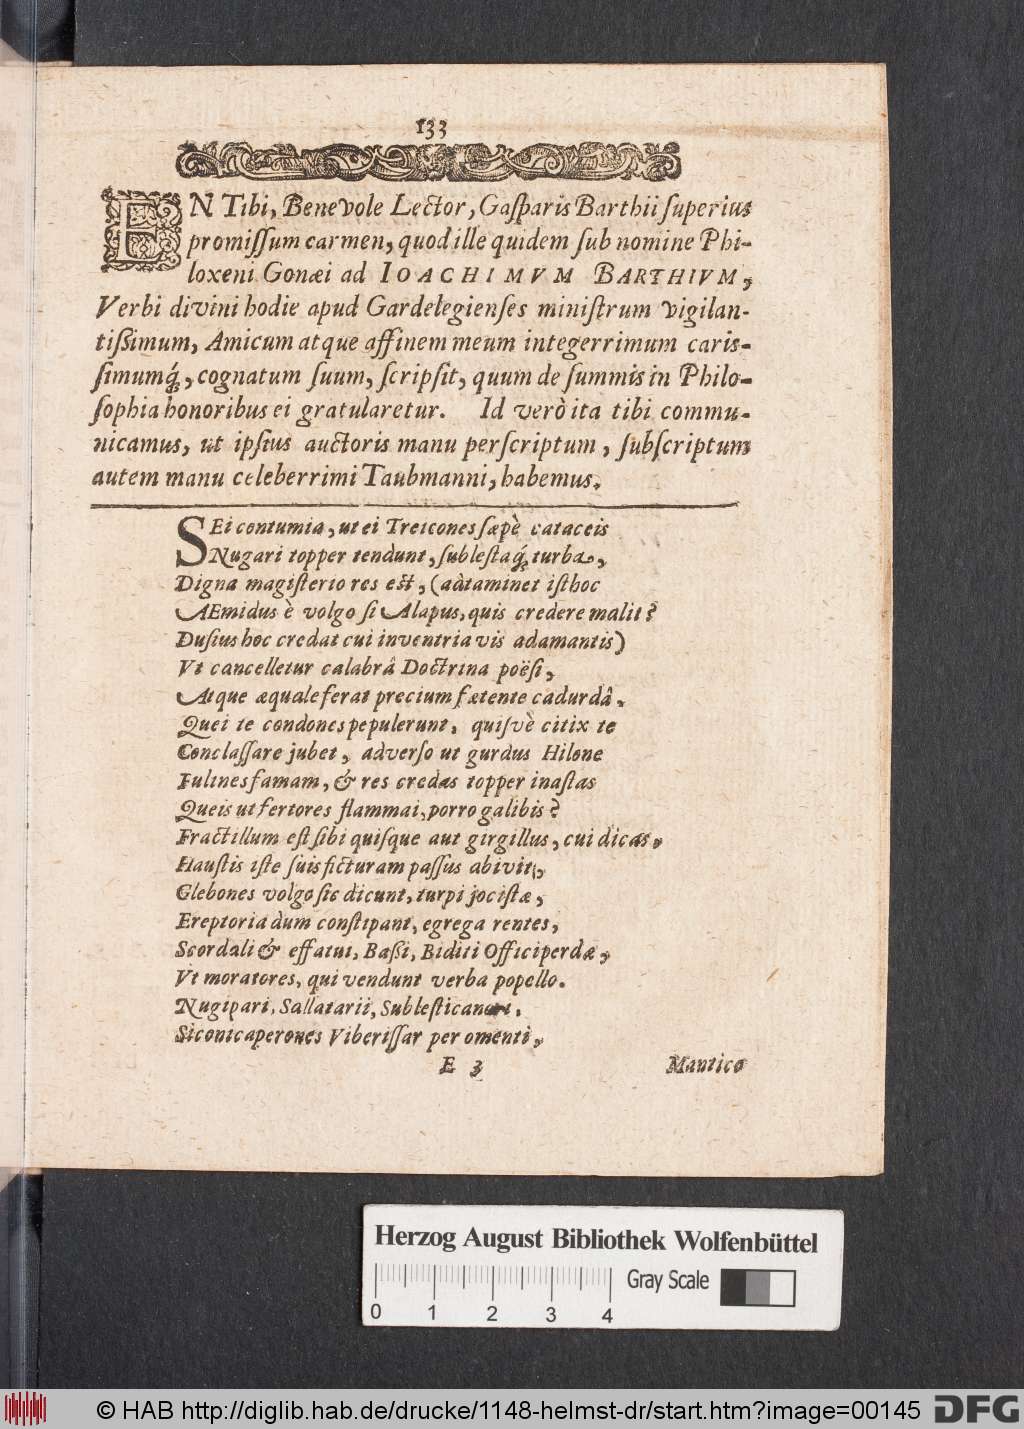 133
EN Tibi, Benevole Lector, Gasparis Barthii superius
promissum carmen, quod ille quidem sub nomine Phi-
loxeni Gonæi ad IOACHIMVM BARTHIVM,
Verbi divini hodie apud Gardelegienses ministrum vigilan-
tissimum, Amicum atque affinem meum integerrimum caris-
simumq́;, cognatum suum, scripsit, quum de summis in Philo-
sophia honoribus ei gratularetur. Id verò ita tibi commu-
nicamus, ut ipsius auctoris manu perscriptum, subscriptum
autem manu celeberrimi Taubmanni, habemus.
SEi contumia, ut ei Treicones sæpè cataceis
Nugari topper tendunt, sublestaq́; turba,
Digna magisterio res est, (adtaminet isthoc
AEmidus è volgo si Alapus, quis credere malit?
Dusius hoc credat cui inventria vis adamantis)
Vt cancelletur calabrâ Doctrina poësi,
Atque æquale ferat precium fœtente cadurdâ.
Quei te condones pepulerunt, quisvè citix te
Conclassare jubet, adverso ut gurdus Hilone
Fultnes famam, & res credas topper inastas
Queis ut fertores flammai, porro galibis?
Fractillum est sibi quisque aut girgillus, cui dicas,
Haustis iste suis ficturam passus abivit,
Glebones volgo sic dicunt, turpi jocistæ,
Ereptoria dum constipant, egrega rentes,
Scordali & effatui, Bassi, Biditi Officiperdæ,
Vt moratores, qui vendunt verba popello.
Nugipari, Sallatarii, Sublesticanori,
Siconicaperones Viberissar per omenti,
E 3 Mantico
Herzog August Bibliothek Wolfenbüttel
Gray Scale
0 1 2 3 4
© HAB http://diglib.hab.de/drucke/1148-helmst-dr/start.htm?image=00145 DFG